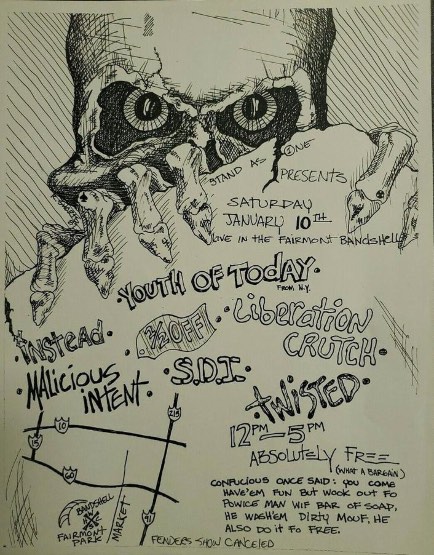 STAND AS ONE
PRESENTS
SATURDAY
JANUARY 10TH
LIVE IN THE FAIRMONT BANDSHELL
·YOUTH OF TODAY·
FROM N.Y.
·INSTEAD·
·½OFF!·
·LIBERATION
CRUTCH·
·MALICIOUS
INTENT·
·S.D.I.·
·TWISTED·
12PM—5PM
ABSOLUTELY FREE
(WHAT A BARGAIN)
CONFUCIOUS ONCE SAID: YOU COME
HAVE'EM FUN BUT WOOK OUT FO
POWICE MAN WIF BAR OF SOAP,
HE WASH'EM DIRTY MOUF, HE
ALSO DO IT FO FREE.
10
215
15
60
91
BANDSHELL
FAIRMONT
PARK
MARKET
FENDERS SHOW CANCELED